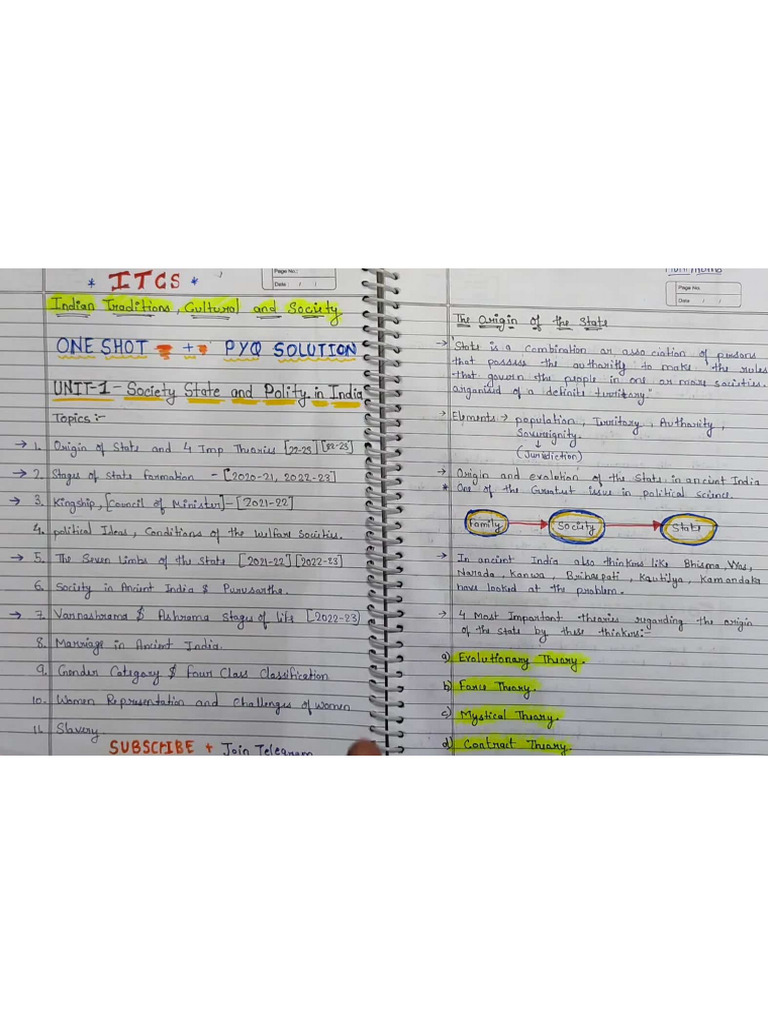 * ITCS *
Page No.:
Date : / /
Indian Traditions, Cultural and Society
ONE SHOT + PYQ SOLUTION
UNIT-1 - Society State and Polity in India
Topics :-
→ 1. Origin of State and 4 Imp Theories [22-23] [22-23]
→ 2. Stages of State formation - [2020-21, 2022-23]
→ 3. Kingship, [Council of Minister] - [2021-22]
4. political Ideal, Conditions of the Welfare Societies.
→ 5. The Seven Limbs of the State [2021-22] [2022-23]
6. Society in Ancient India & Purusartha.
→ 7. Varnashrama & Ashrama Stages of life [2022-23]
8. Marriage in Ancient India.
9. Gender Category & Four Class Classification
10. Women Representation and Challenges of women
11. Slavery
SUBSCRIBE + Join Telegram
Page No.
Date / /
The Origin of the State
→ "State is a Combination or association of persons
that possess the authority to make the rules
that govern the people in one or more societies.
organised of a definite territory."
→ Elements → population, Territory, Authority,
Sovereignity.
↓
(Jurisdiction)
→ Origin and evolution of the State in ancient India
* One of the Greatest issue in political science.
Family → Society → State
→ In ancient India also thinkers like Bhisma, Vyas,
Narada, Kanwa, Brihaspati, Kautilya, Kamandaka
have looked at the problem.
→ 4 Most Important theories regarding the origin
of the state by these thinkers:-
a) Evolutionary Theory.
b) Force Theory.
c) Mystical Theory.
d) Contract Theory.